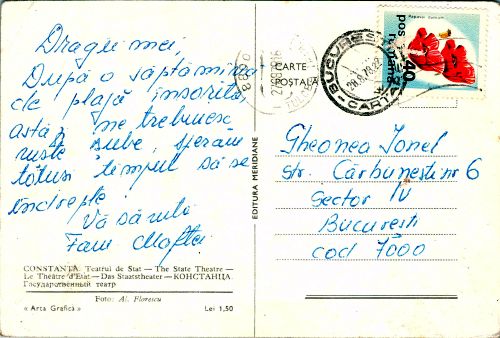 Dragii mei,
După o săptămînă
de plajă însorită,
astăzi ne trebuiesc
niște șube, sperăm
totuși timpul să se
îndrepte.
Vă sărută
Fani Maftei
CONSTANȚA. Teatrul de Stat — The State Theatre —
Le Théâtre d'Etat — Das Staatstheater — КОНСТАНЦА.
Государственный театр
Foto: Al. Florescu
« Arta Grafică »
Lei 1,50
EDITURA MERIDIANE
CARTE
POSTALĂ
BUCUREȘTI
CARTARE
Papaver dubium
posta
romana
40
Gheonea Ionel
str. Cărbunești nr 6
Sector IV
București
cod 7000